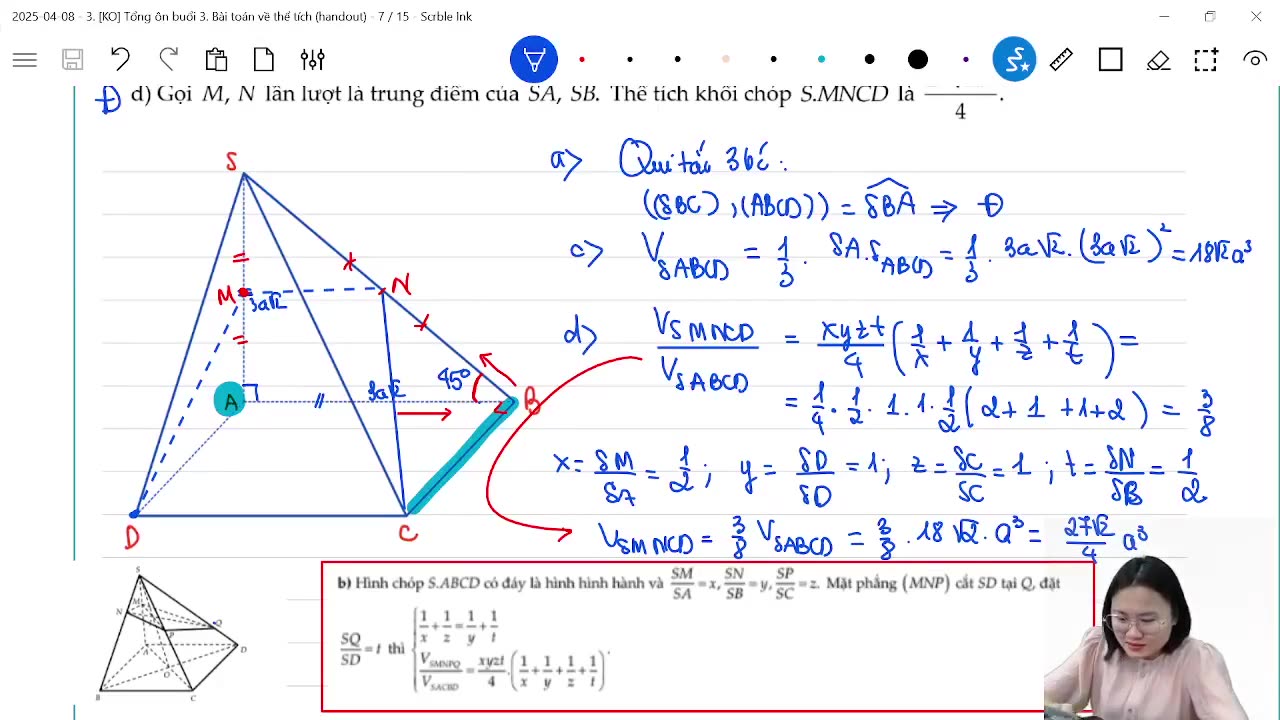 2025-04-08 - 3. [KO] Tổng ôn buổi 3. Bài toán về thể tích (handout) - 7 / 15 - Scrble Ink
Đ d) Gọi M, N lần lượt là trung điểm của SA, SB. Thể tích khối chóp S.MNCD là
4
.
S
M
N
3a√2
A
3a√2
45°
B
D
C
a> Qui tắc 3 bước:
((SBC), (ABCD)) = SBA ⇒ Đ
c> V_SABCD = 1/3 . SA.S_ABCD = 1/3 . 3a√2 . (3a√2)² = 18√2a³
d> V_SMNCD / V_SABCD = xyzt/4 (1/x + 1/y + 1/z + 1/t) =
= 1/4 . 1/2 . 1 . 1 . 1/2 (2 + 1 + 1 + 2) = 3/8
x = SM/SA = 1/2 ; y = SD/SD = 1 ; z = SC/SC = 1 ; t = SN/SB = 1/2
V_SMNCD = 3/8 V_SABCD = 3/8 . 18√2 . a³ = 27√2/4 a³
b) Hình chóp S.ABCD có đáy là hình hình hành và SM/SA = x, SN/SB = y, SP/SC = z. Mặt phẳng (MNP) cắt SD tại Q, đặt
SQ/SD = t thì
1/x + 1/z = 1/y + 1/t
V_SMNPQ / V_SACBD = xyzt/4 . (1/x + 1/y + 1/z + 1/t) .
S
N
P
Q
A
D
O
B
C